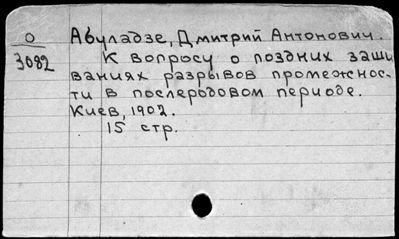 О Абуладзе, Дмитрий Антонович.
3082 К вопросу о поздних заши
ваниях разрывов промежнос-
ти в послеродовом периоде.
Киев, 1902.
15 стр.